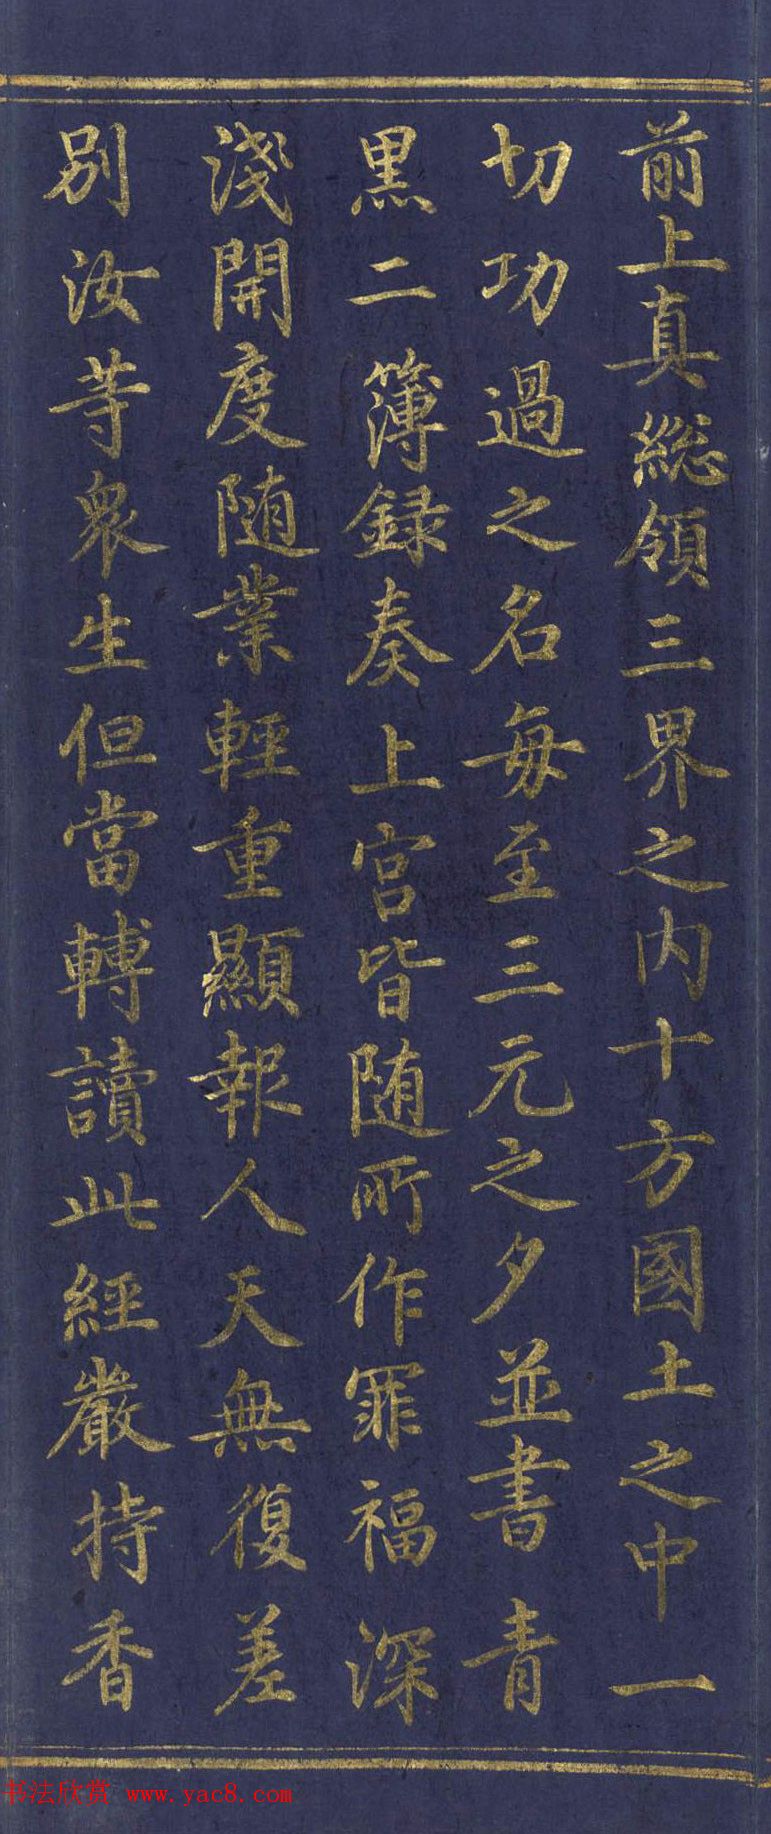 前上真総領三界之内十方國土之中一
切功過之名每至三元之夕並書青
黒二簿録奏上宫皆随所作罪福深
淺開度随業輕重顯報人天無復差
別汝等衆生但當轉讀此經嚴持香
书法欣赏 www.yac8.com